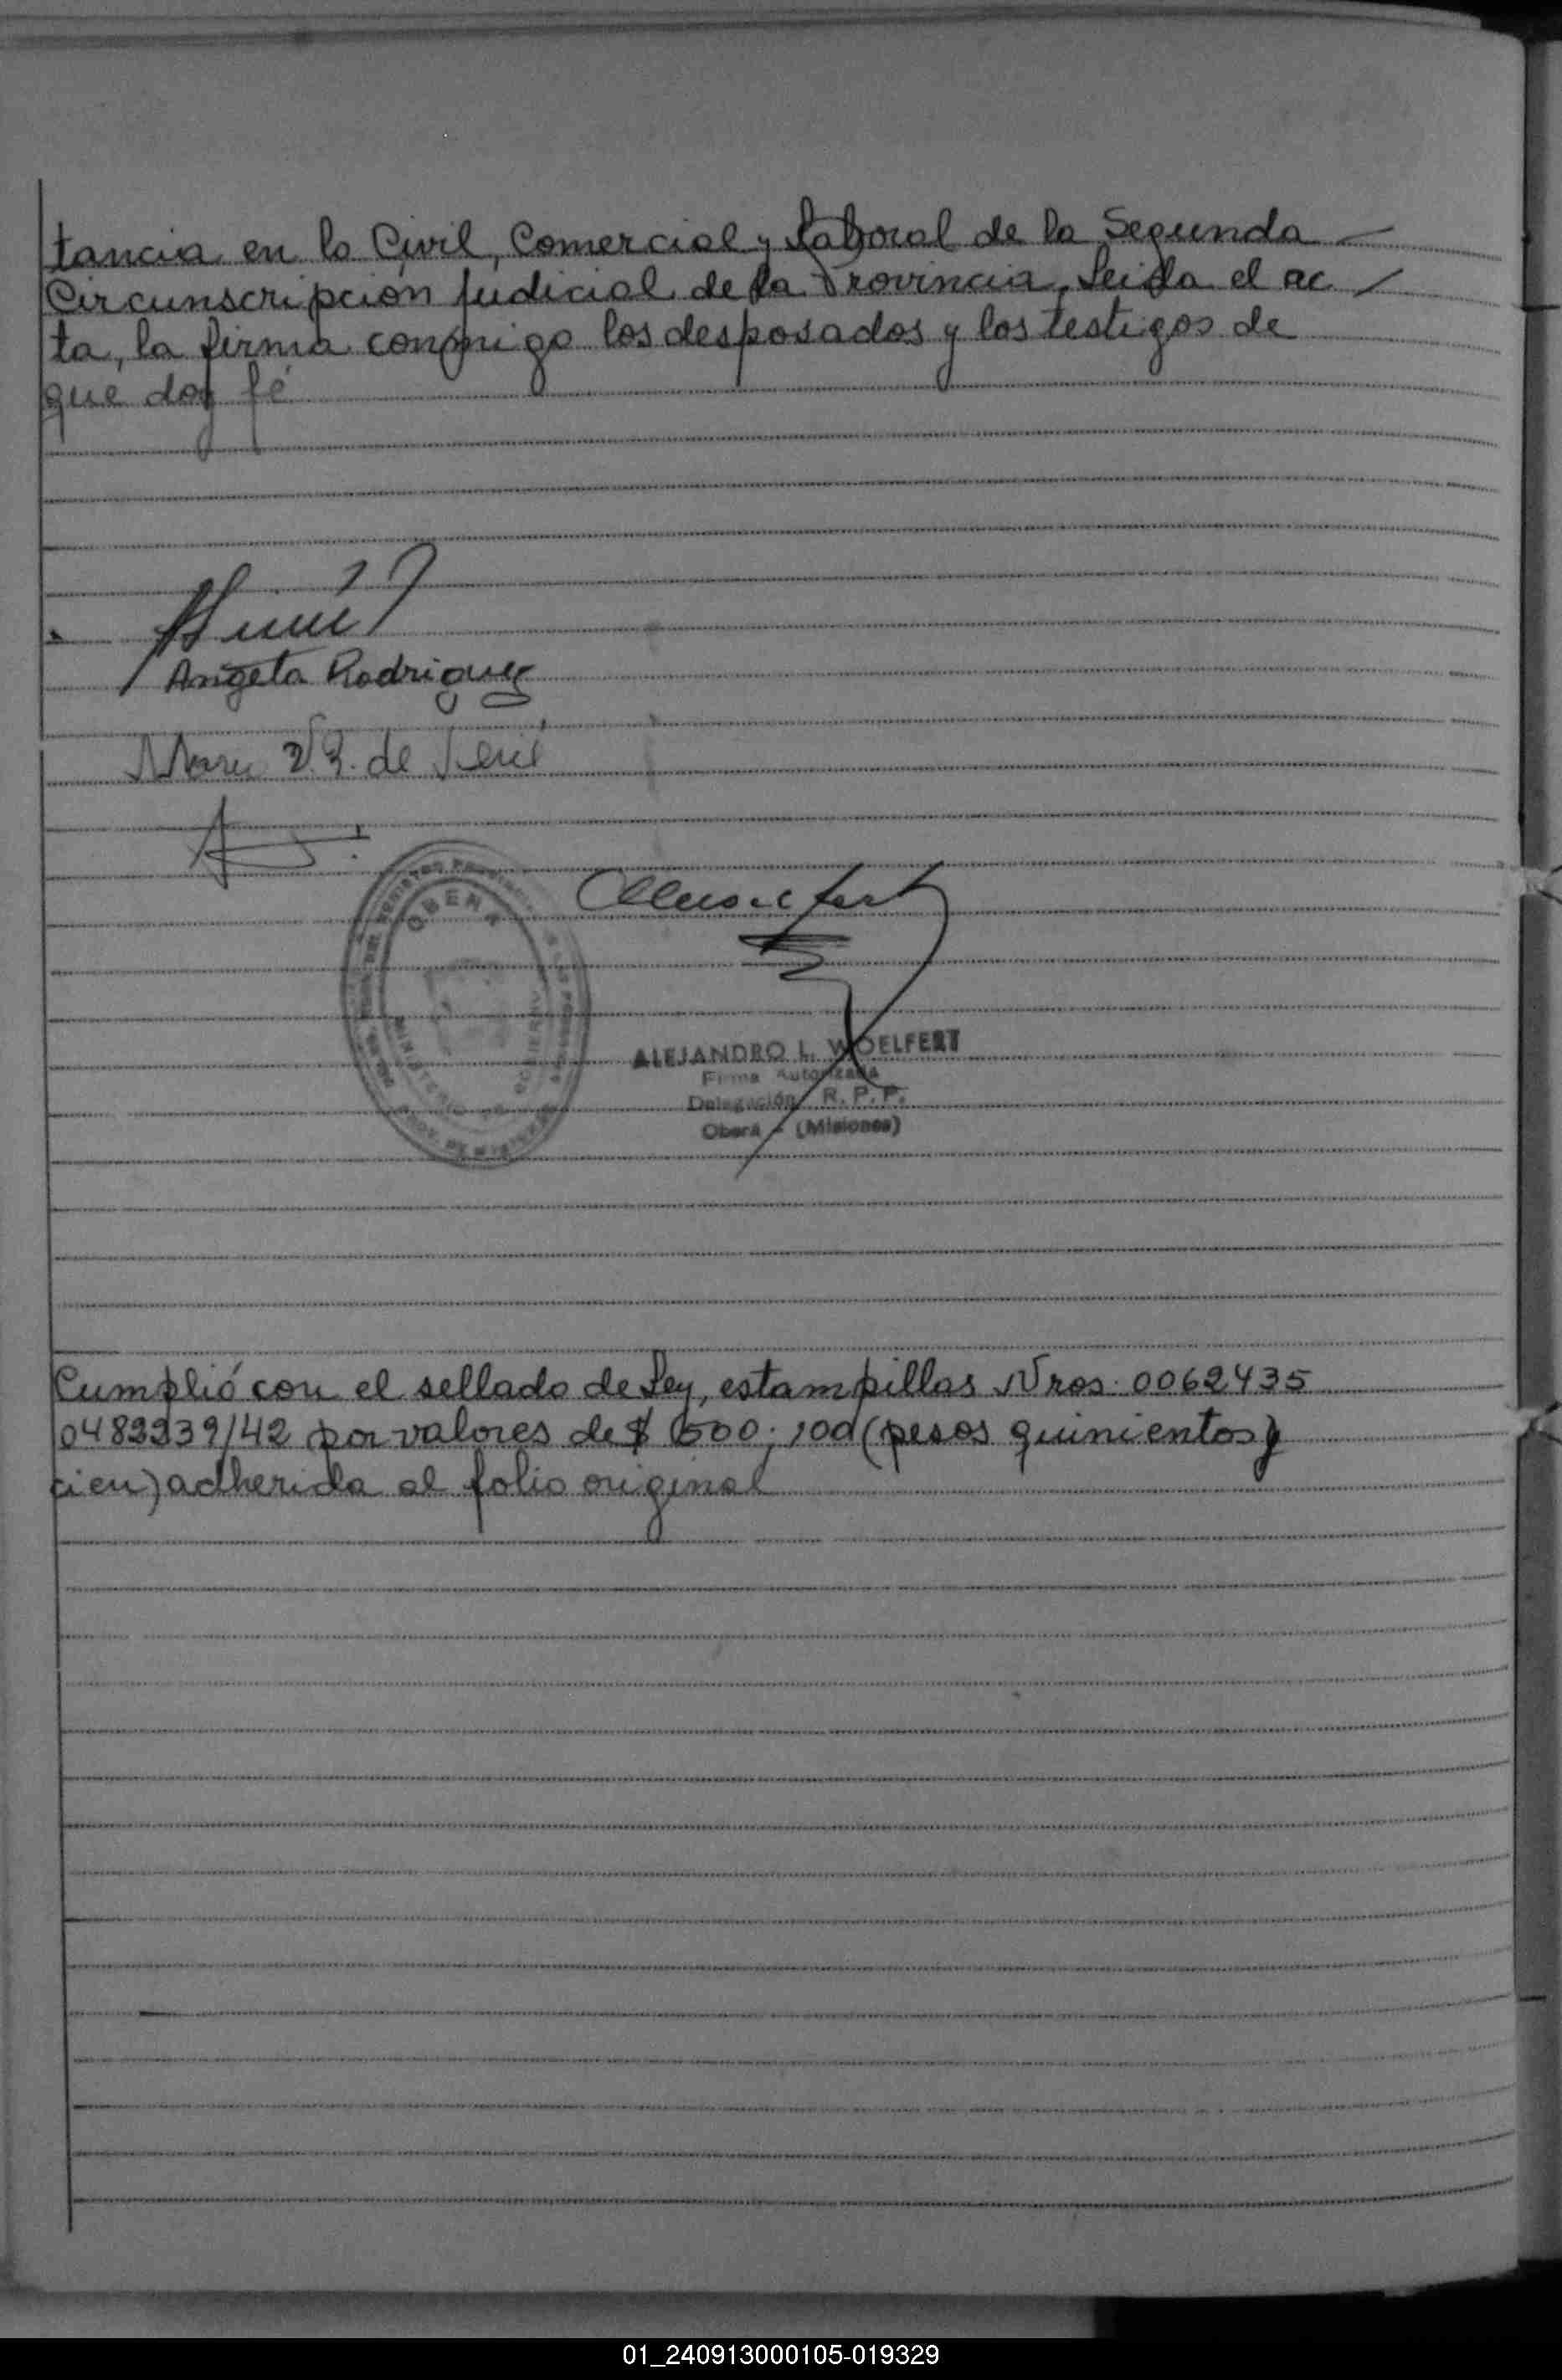 tancia en lo Civil, Comercial y Laboral de la Segunda —
Circunscripción Judicial de la Provincia. Leida el ac /
ta, la firma conmigo los desposados y los testigos de
que doy fé
Angela Rodriguez
de
OBERA
MINISTERIO DE GOBIERNO
ALEJANDRO L. WOELFERT
Firma Autorizada
Delegación R. P. P.
Oberá - (Misiones)
Cumplió con el sellado de Ley, estampillas Nros. 0062435
0482939/42 por valores de $ 500; 100 (pesos quinientos y
cien) adherida al folio original
01_240913000105-019329